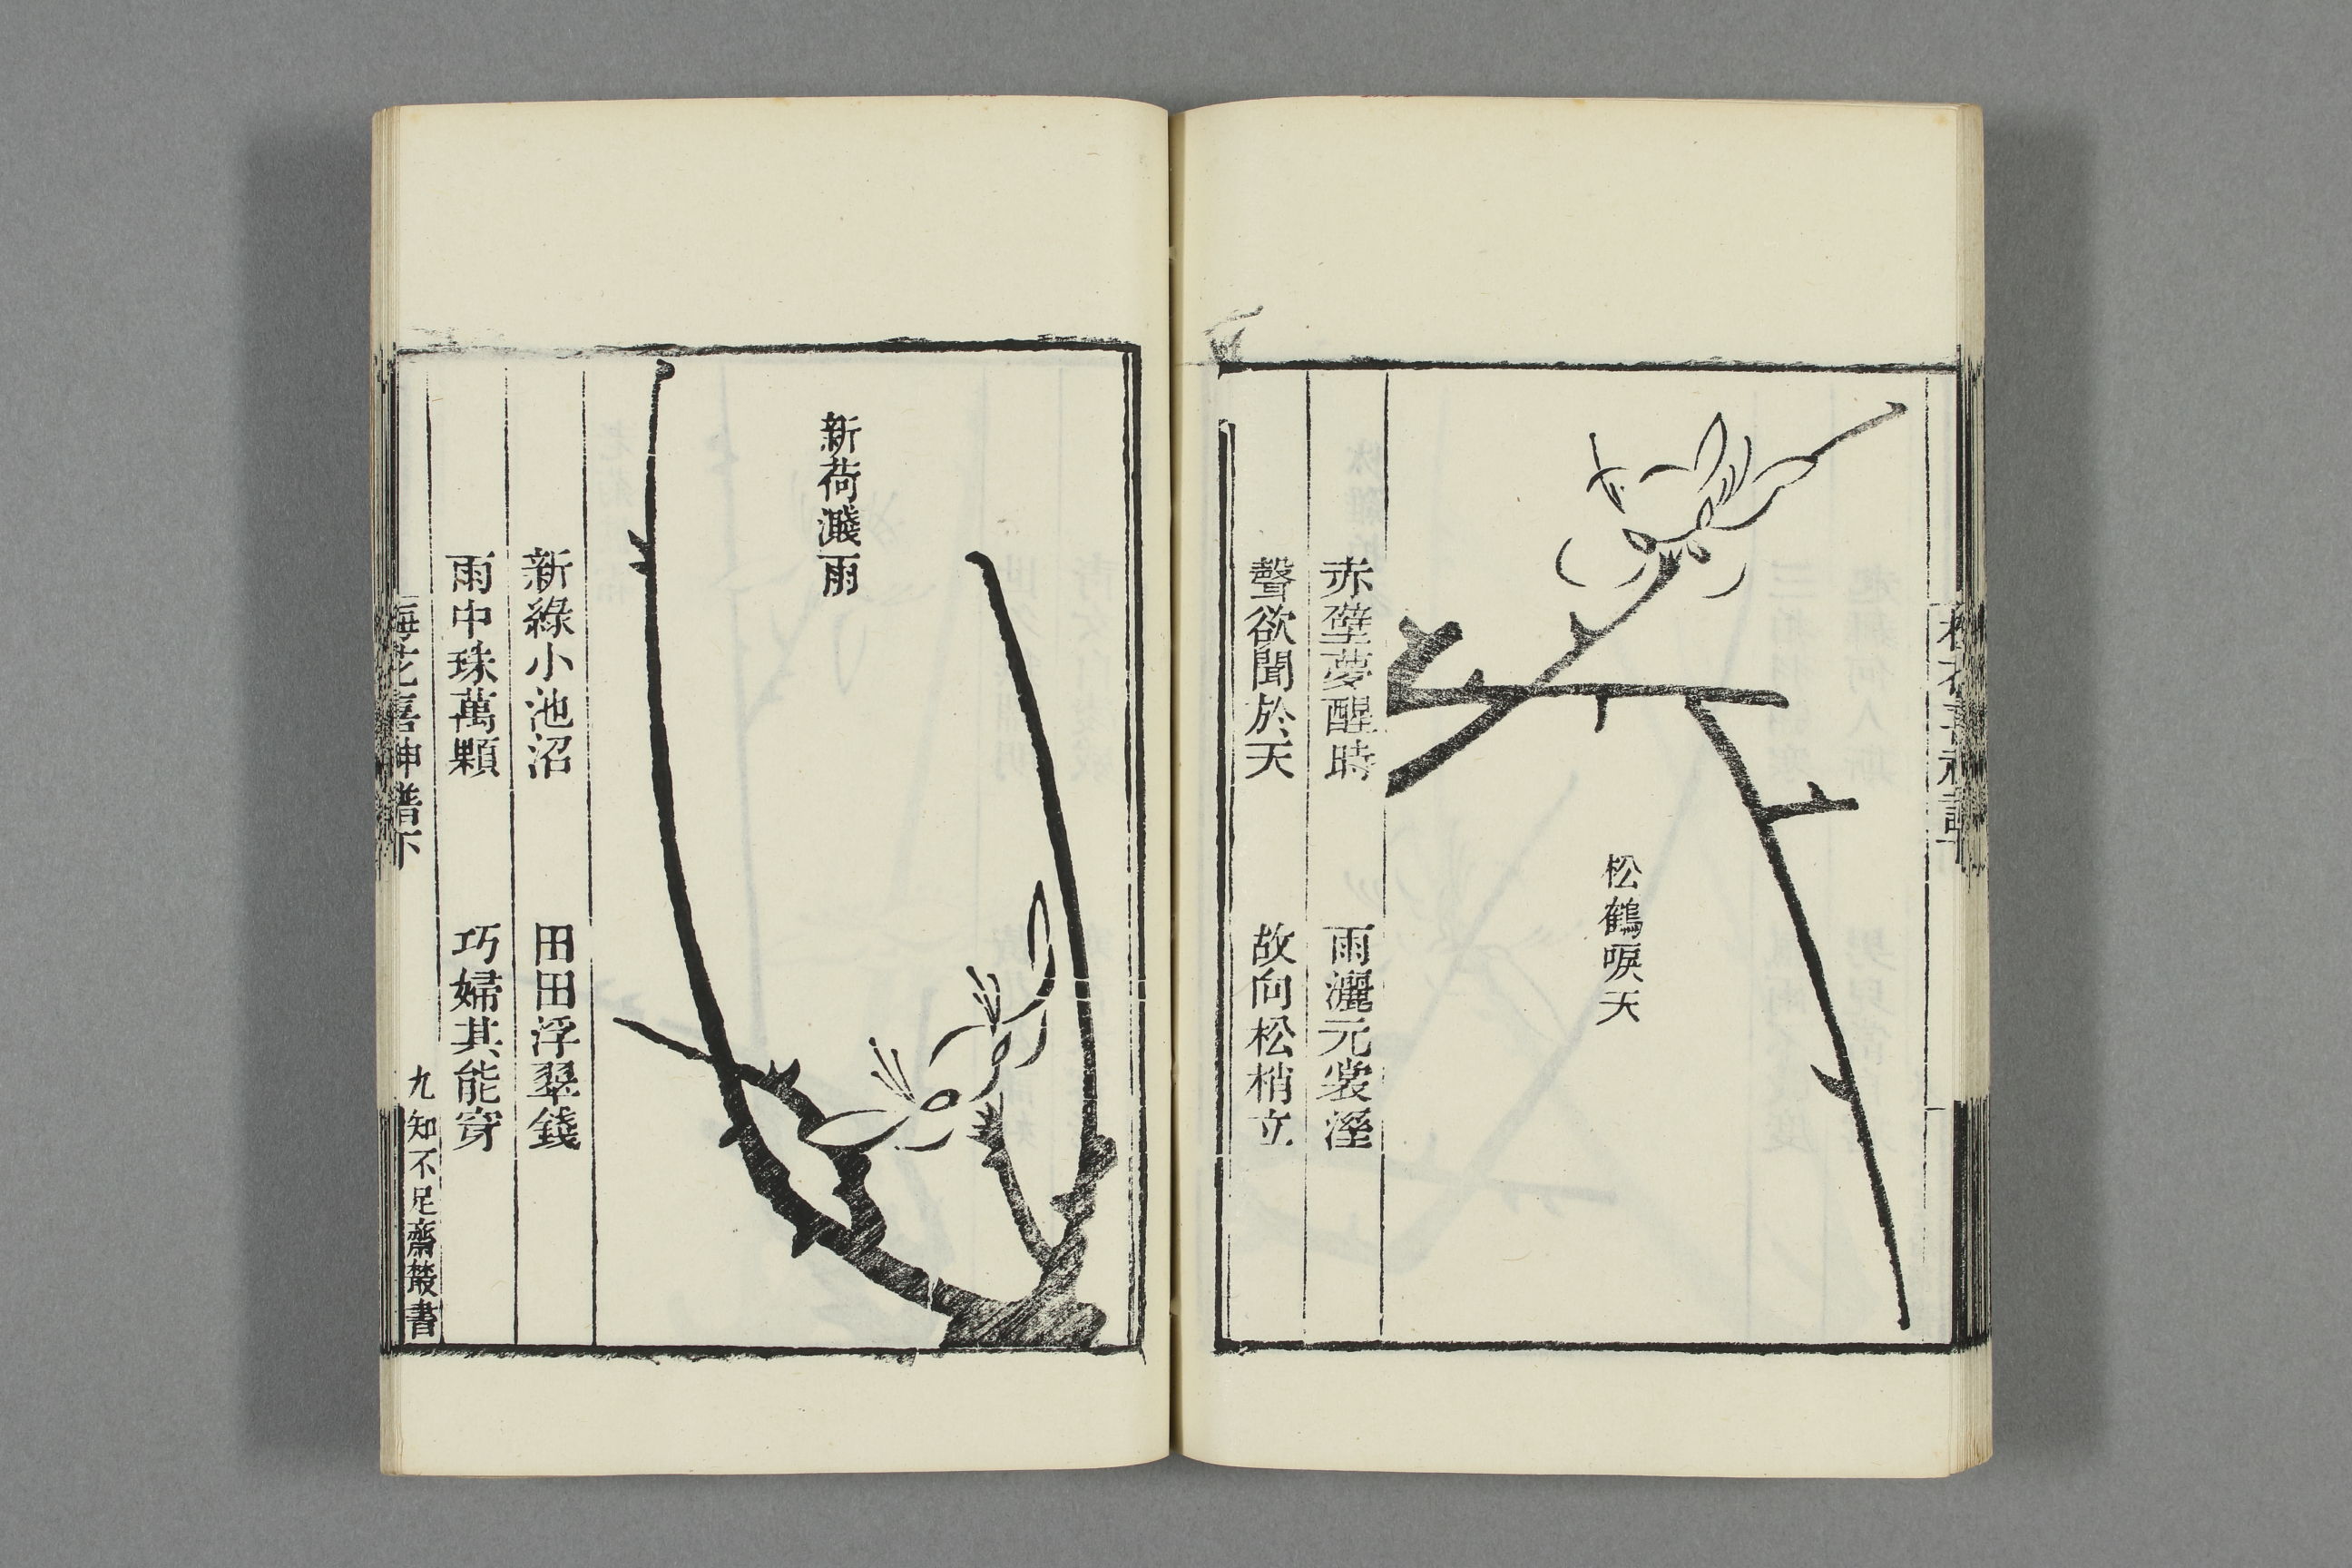 松鶴唳天
赤壁夢醒時　雨灑元裳溼
聲欲聞於天　故向松梢立
新荷濺雨
新綠小池沼　田田浮翠錢
雨中珠萬顆　巧婦其能穿
梅花喜神譜下
九
知不足齋叢書